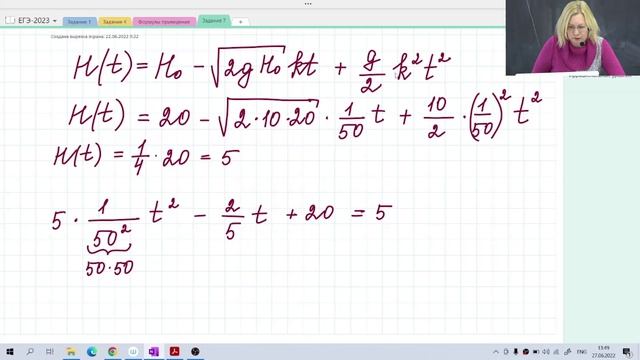 ЕГЭ-2023
Задание 1
Задание 4
Формулы приведения
Задание 7
Создана вырезка экрана: 22.06.2022 9:22
H(t) = H₀ − √(2gH₀) kt + g/2 k²t²
H(t) = 20 − √(2·10·20) · 1/50 t + 10/2 · (1/50)² t²
H(t) = 1/4 · 20 = 5
5 · 1/50² t² − 2/5 t + 20 = 5
50·50
ENG
13:49
27.06.2022